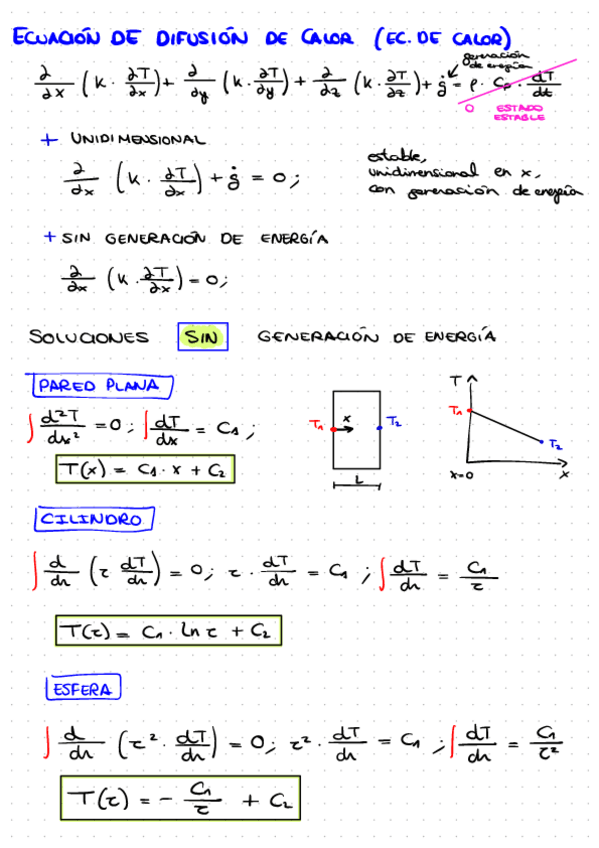 ECUACIÓN DE DIFUSIÓN DE CALOR (EC. DE CALOR)
generación de energía
∂/∂x (k · ∂T/∂x) + ∂/∂y (k · ∂T/∂y) + ∂/∂z (k · ∂T/∂z) + ġ = ρ · Cp · dT/dt
0 ESTADO ESTABLE
+ UNIDIMENSIONAL
∂/∂x (k · ∂T/∂x) + ġ = 0;
estable,
unidimensional en x,
con generación de energía
+ SIN GENERACIÓN DE ENERGÍA
∂/∂x (k · ∂T/∂x) = 0;
SOLUCIONES SIN GENERACIÓN DE ENERGÍA
PARED PLANA
∫ d²T/dx² = 0; ∫ dT/dx = C1;
T(x) = C1 · x + C2
T1 x T2
L
T
T1
T2
x=0 x
CILINDRO
∫ d/dr (r dT/dr) = 0; r · dT/dr = C1; ∫ dT/dr = C1/r
T(r) = C1 · ln r + C2
ESFERA
∫ d/dr (r² · dT/dr) = 0; r² · dT/dr = C1; ∫ dT/dr = C1/r²
T(r) = - C1/r + C2